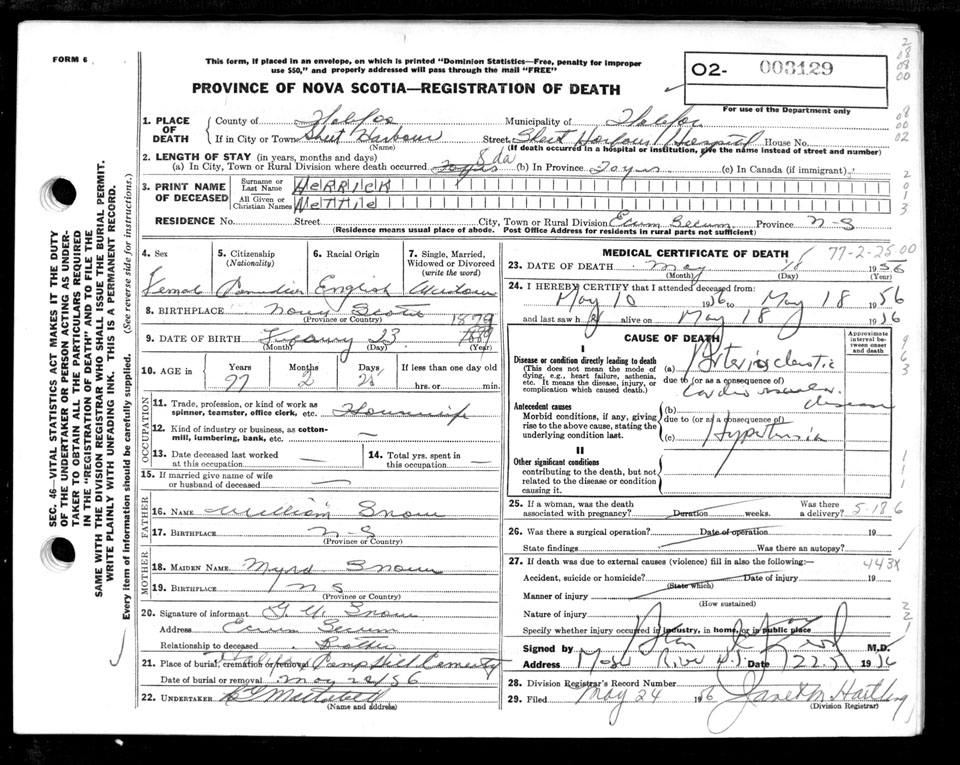 FORM 6
This form, if placed in an envelope, on which is printed "Dominion Statistics—Free, penalty for improper
use $50," and properly addressed will pass through the mail "FREE"
PROVINCE OF NOVA SCOTIA—REGISTRATION OF DEATH
O2- 003129
For use of the Department only
1. PLACE OF DEATH
County of Halifax Municipality of Halifax
If in City or Town Sheet Harbour Street Sheet Harbour Hospital House No.
(Name) (If death occurred in a hospital or institution, give the name instead of street and number)
2. LENGTH OF STAY (in years, months and days) 8 da
(a) In City, Town or Rural Division where death occurred (b) In Province 70 yrs (c) In Canada (if immigrant)
3. PRINT NAME OF DECEASED
Surname or Last Name HERRICK
All Given or Christian Names NETTIE
RESIDENCE No. Street City, Town or Rural Division Ecum Secum Province N-S
(Residence means usual place of abode. Post Office Address for residents in rural parts not sufficient)
4. Sex Female
5. Citizenship (Nationality) Canadian
6. Racial Origin English
7. Single, Married, Widowed or Divorced (write the word) Widow
8. BIRTHPLACE Nova Scotia
(Province or Country)
9. DATE OF BIRTH 23 1879
(Month) (Day) (Year)
10. AGE IN Years 77 Months 2 Days 25 If less than one day old
hrs. or min.
OCCUPATION
11. Trade, profession, or kind of work as spinner, teamster, office clerk, etc. Housewife
12. Kind of industry or business, as cotton-mill, lumbering, bank, etc. —
13. Date deceased last worked at this occupation —
14. Total yrs. spent in this occupation —
15. If married give name of wife or husband of deceased —
FATHER
16. NAME William Snow
17. BIRTHPLACE N-S
(Province or Country)
MOTHER
18. MAIDEN NAME Myra Snow
19. BIRTHPLACE N S
(Province or Country)
20. Signature of informant Snow
Address Ecum Secum
Relationship to deceased Brother
21. Place of burial, cremation or removal Camp Hill Cemetery
Date of burial or removal May 22/56
22. UNDERTAKER
(Name and address)
77-2-25 00
MEDICAL CERTIFICATE OF DEATH
23. DATE OF DEATH May 18 1956
(Month) (Day) (Year)
24. I HEREBY CERTIFY that I attended deceased from:
May 10 1956 to May 18 1956
and last saw h alive on May 18 1956
CAUSE OF DEATH
Approximate interval between onset and death
I
Disease or condition directly leading to death
(This does not mean the mode of dying, e.g., heart failure, asthenia, etc. It means the disease, injury, or complication which caused death.)
(a) Arteriosclerotic
due to (or as a consequence of)
Cardiovascular disease
Antecedent causes
Morbid conditions, if any, giving rise to the above cause, stating the underlying condition last.
(b)
due to (or as a consequence of)
(c) Hypertension
II
Other significant conditions
contributing to the death, but not related to the disease or condition causing it.
25. If a woman, was the death associated with pregnancy? Duration weeks. Was there a delivery?
5-186
26. Was there a surgical operation? Date of operation 19
State findings Was there an autopsy?
27. If death was due to external causes (violence) fill in also the following:
443X
Accident, suicide or homicide? Date of injury 19
(State which)
Manner of injury
(How sustained)
Nature of injury
Specify whether injury occurred in industry, in home, or in public place
Signed by M.D.
Address Moser River N.S. Date 22.5 1956
28. Division Registrar's Record Number
29. Filed May 24 1956 Janet M Hartling
(Division Registrar)
SEC. 46—VITAL STATISTICS ACT MAKES IT THE DUTY
OF THE UNDERTAKER OR PERSON ACTING AS UNDER-
TAKER TO OBTAIN ALL THE PARTICULARS REQUIRED
IN THE "REGISTRATION OF DEATH" AND TO FILE THE
SAME WITH THE DIVISION REGISTRAR WHO SHALL ISSUE THE BURIAL PERMIT.
WRITE PLAINLY WITH UNFADING INK. THIS IS A PERMANENT RECORD.
Every item of information should be carefully supplied. (See reverse side for instructions.)